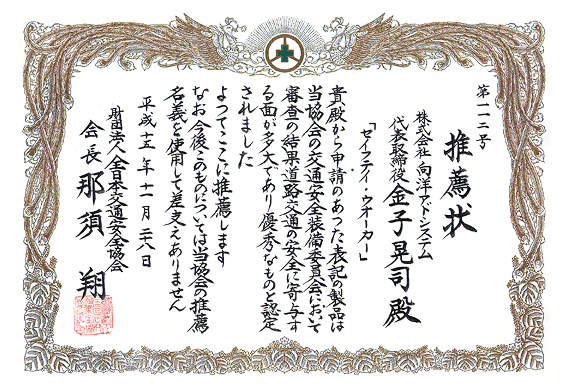 第一一二号
推薦状
株式会社 向洋アドシステム
代表取締役 金子晃司 殿
「セイフティ・ウオーター」
貴殿から申請のあった表記の製品は
当協会の交通安全装備委員会において
審査の結果道路交通の安全に寄与す
る面が多大であり優秀なものと認定
されました
よってここに推薦します
なお今後このものについては当協会の推薦
名義を使用して差支えありません
平成十五年十一月二八日
財団法人全日本交通安全協会
会長 那須 翔